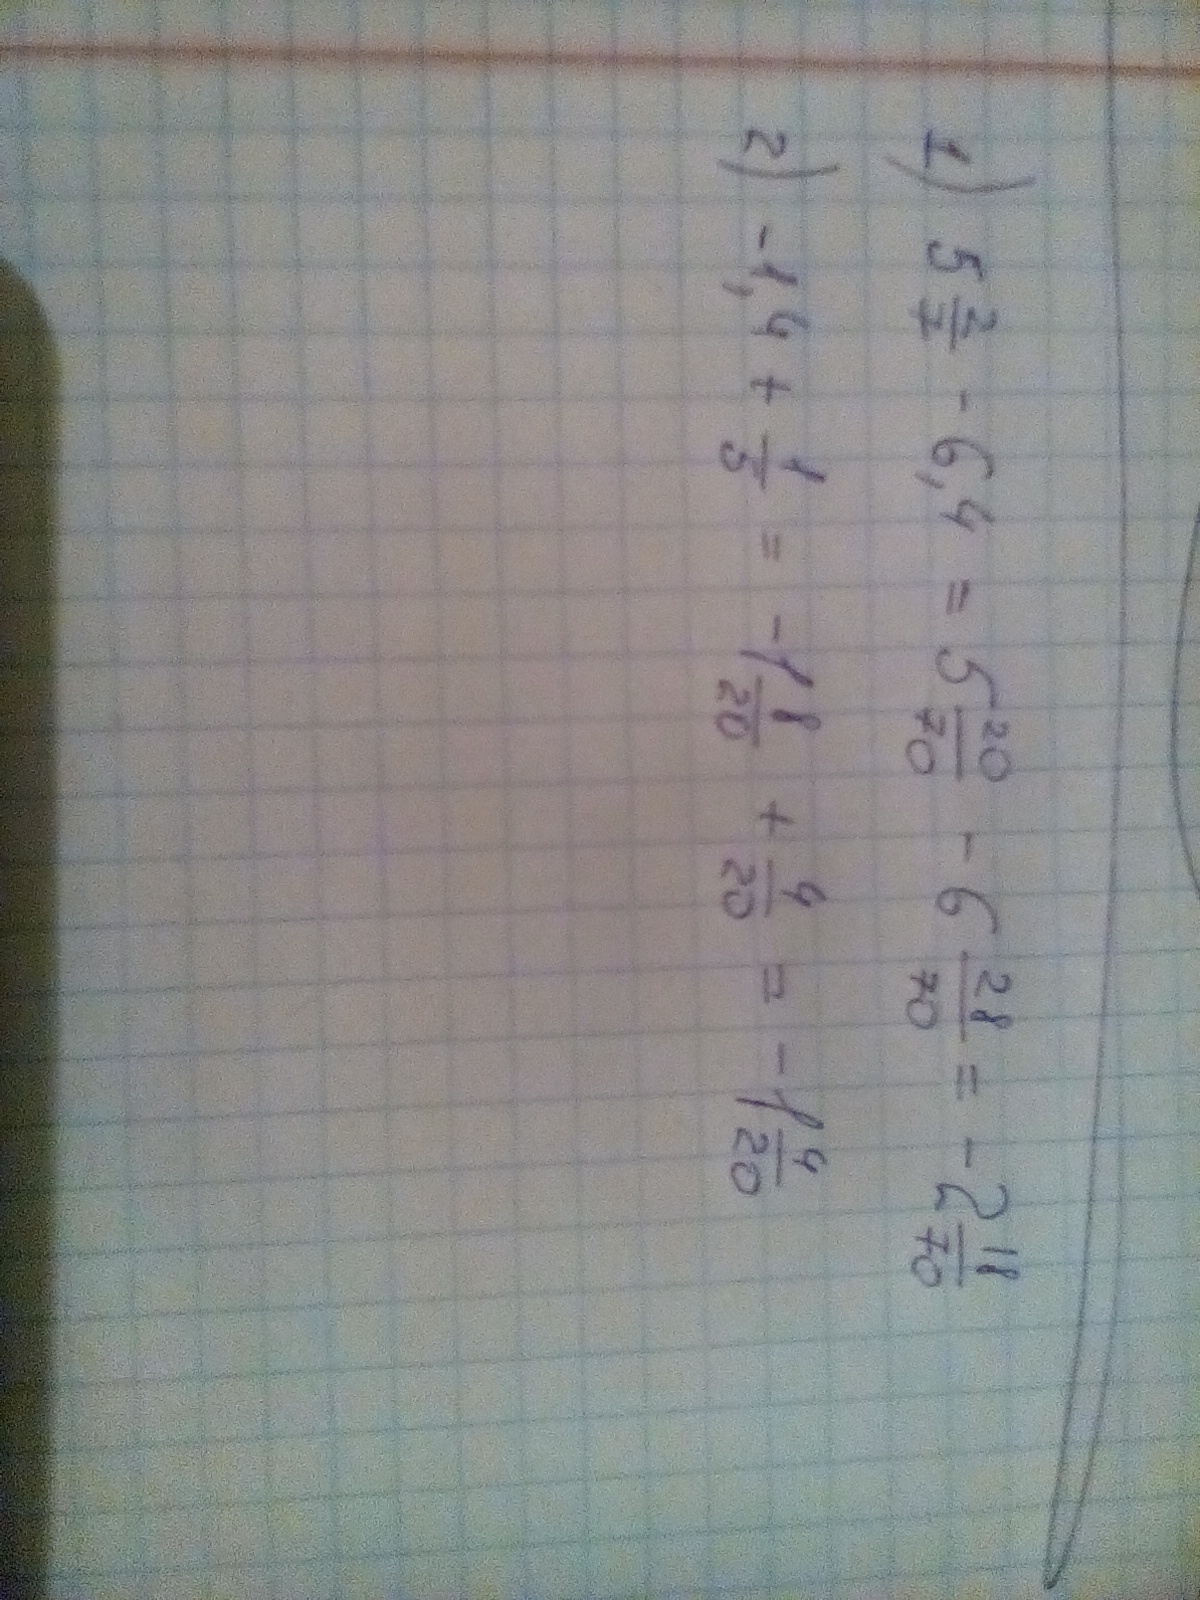 1) 5 2/7 - 6,4 = 5 20/70 - 6 28/70 = -2 18/70
2) -1,4 + 1/5 = -1 8/20 + 4/20 = -1 4/20